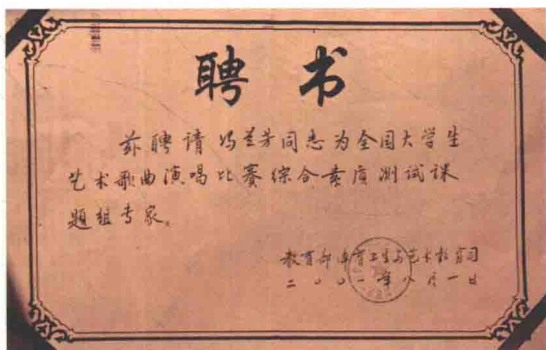 聘书
兹聘请冯兰芳同志为全国大学生
艺术歌曲演唱比赛综合素质测试课
题组专家。
教育部体育卫生与艺术教育司
二〇〇一年八月一日